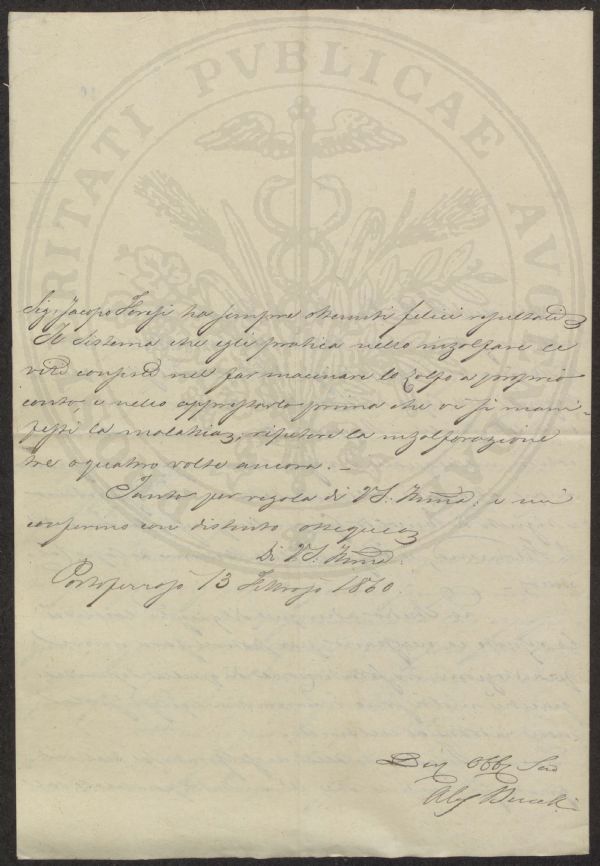 Sig: Jacopo Foresi ha sempre ottenuti felici resultati
Il Sistema che egli pratica nello inzolfare le
viti consiste nel far macinare lo Zolfo a proprio
conto, e nello apprestarlo prima che vi si mani-
festi la malattia, ripetere la inzolforazione
tre o quattro volte ancora. –
Tanto per regola di V.S. Illma: e mi
confermo con distinto ossequio
Di V.S. Illma.
Portoferrajo 13 Febbrajo 1860.
Dev Obb Ser
PVBLICAE